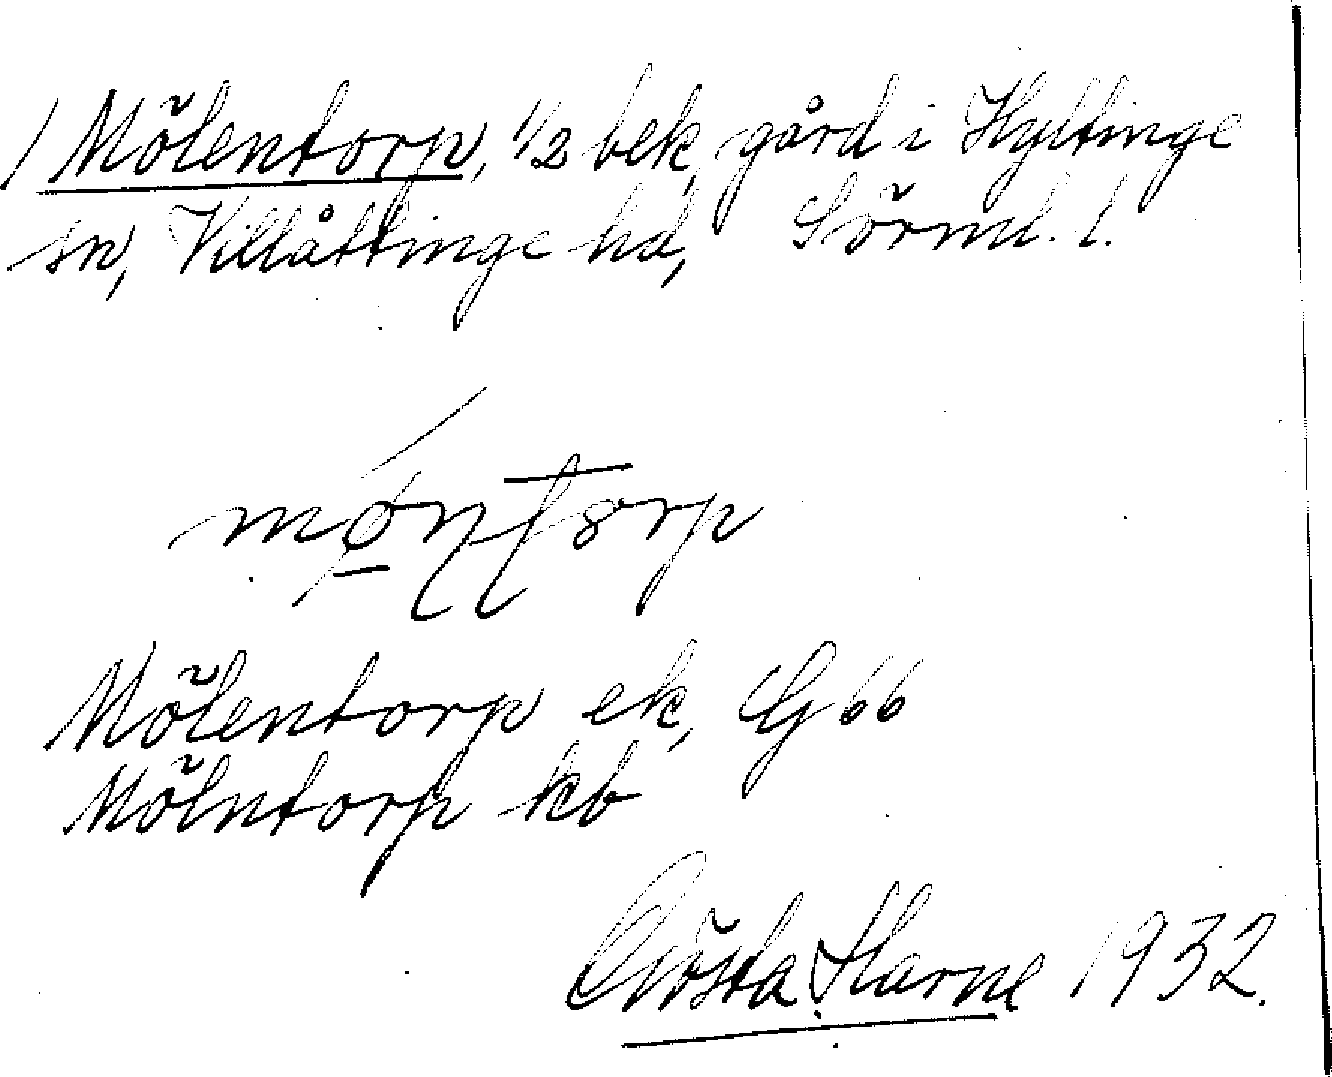 / Mölentorp, 1/2 bek, gård i Hyltinge
sn, Villåttinge hd, Sörml. l.
mǿntorp
Mölentorp ek, G 66
Mölntorp kb
Gösta Harne 1932.